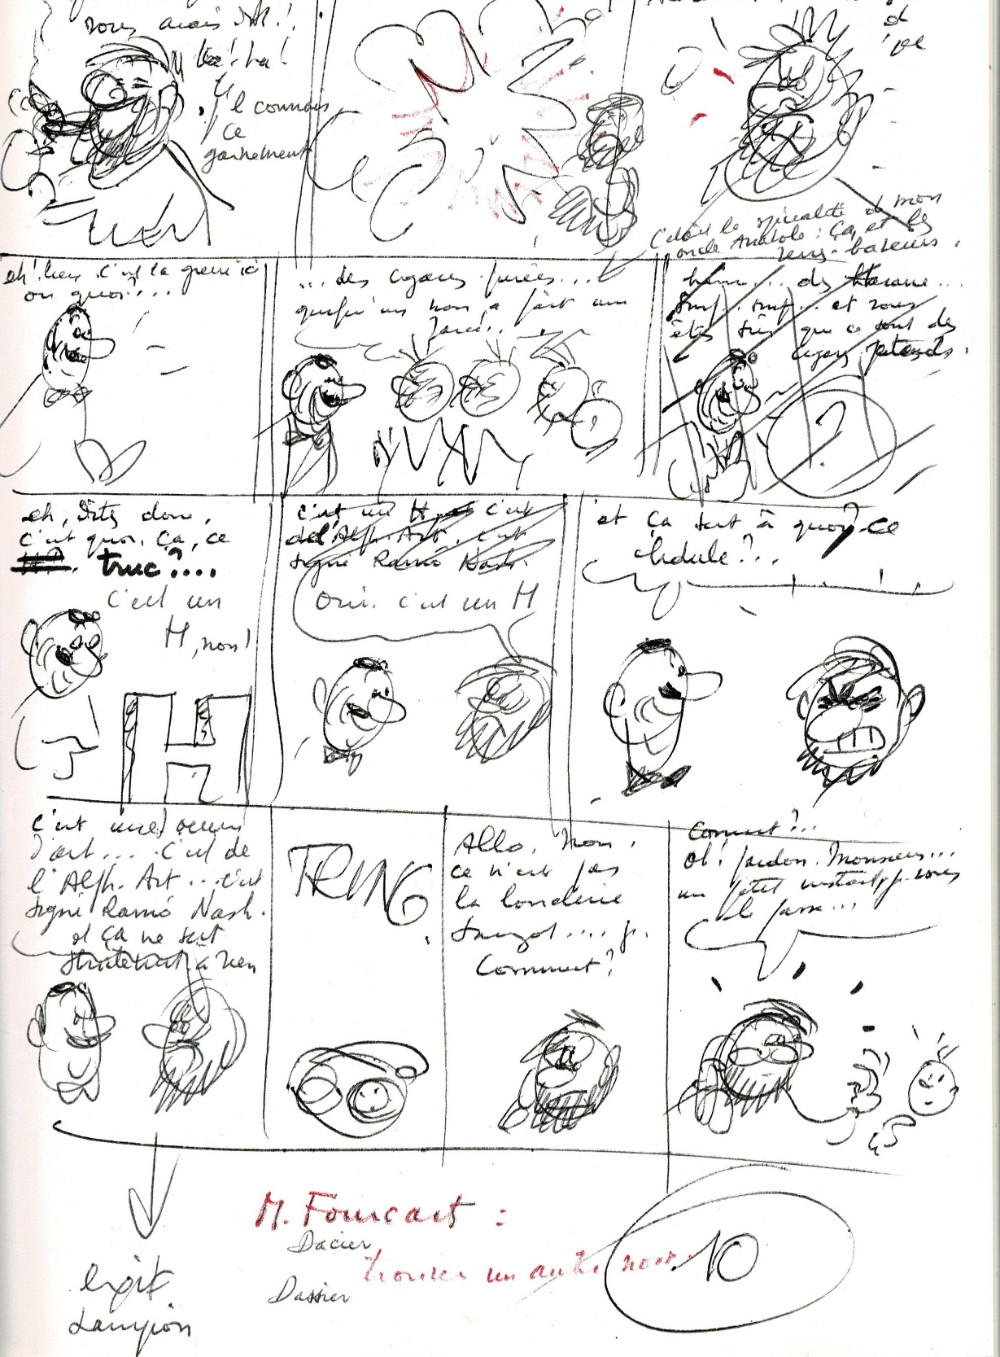 vous avais dit!..
ha! ha!
Il connais
ce
garnement
C'était la spécialité de mon
oncle Anatole : Ça, et les
verres baveurs.
eh! bien c'est la guerre ici
ou quoi?...
... des cigares farcis...
quelqu'un nous a fait une
farce!..
hmm... des
Snif.. snif... et vous
êtes sûr que ce sont des
cigares
eh, dites donc,
c'est quoi, ça, ce
truc?....
C'est un
H, non!
c'est un H c'est
de l'Alph-Art. c'est
signé Ramó Nash.
Oui. c'est un H
et ça sert à quoi? ce
chdule?...
c'est une oeuvre
d'art... C'est de
l'Alph-Art... c'est
signé Ramó Nash.
et ça ne sert
strictement à rien
TRING
Allo, non,
ce n'est pas
la londerie
Sanzot.... je.
Comment?
Comment?...
oh! pardon. Monsieur...
un petit instant, je vous
le passe...
exit
Lampion
M. Fourcart :
Dacier
trouver un autre nom.
Dassier
10